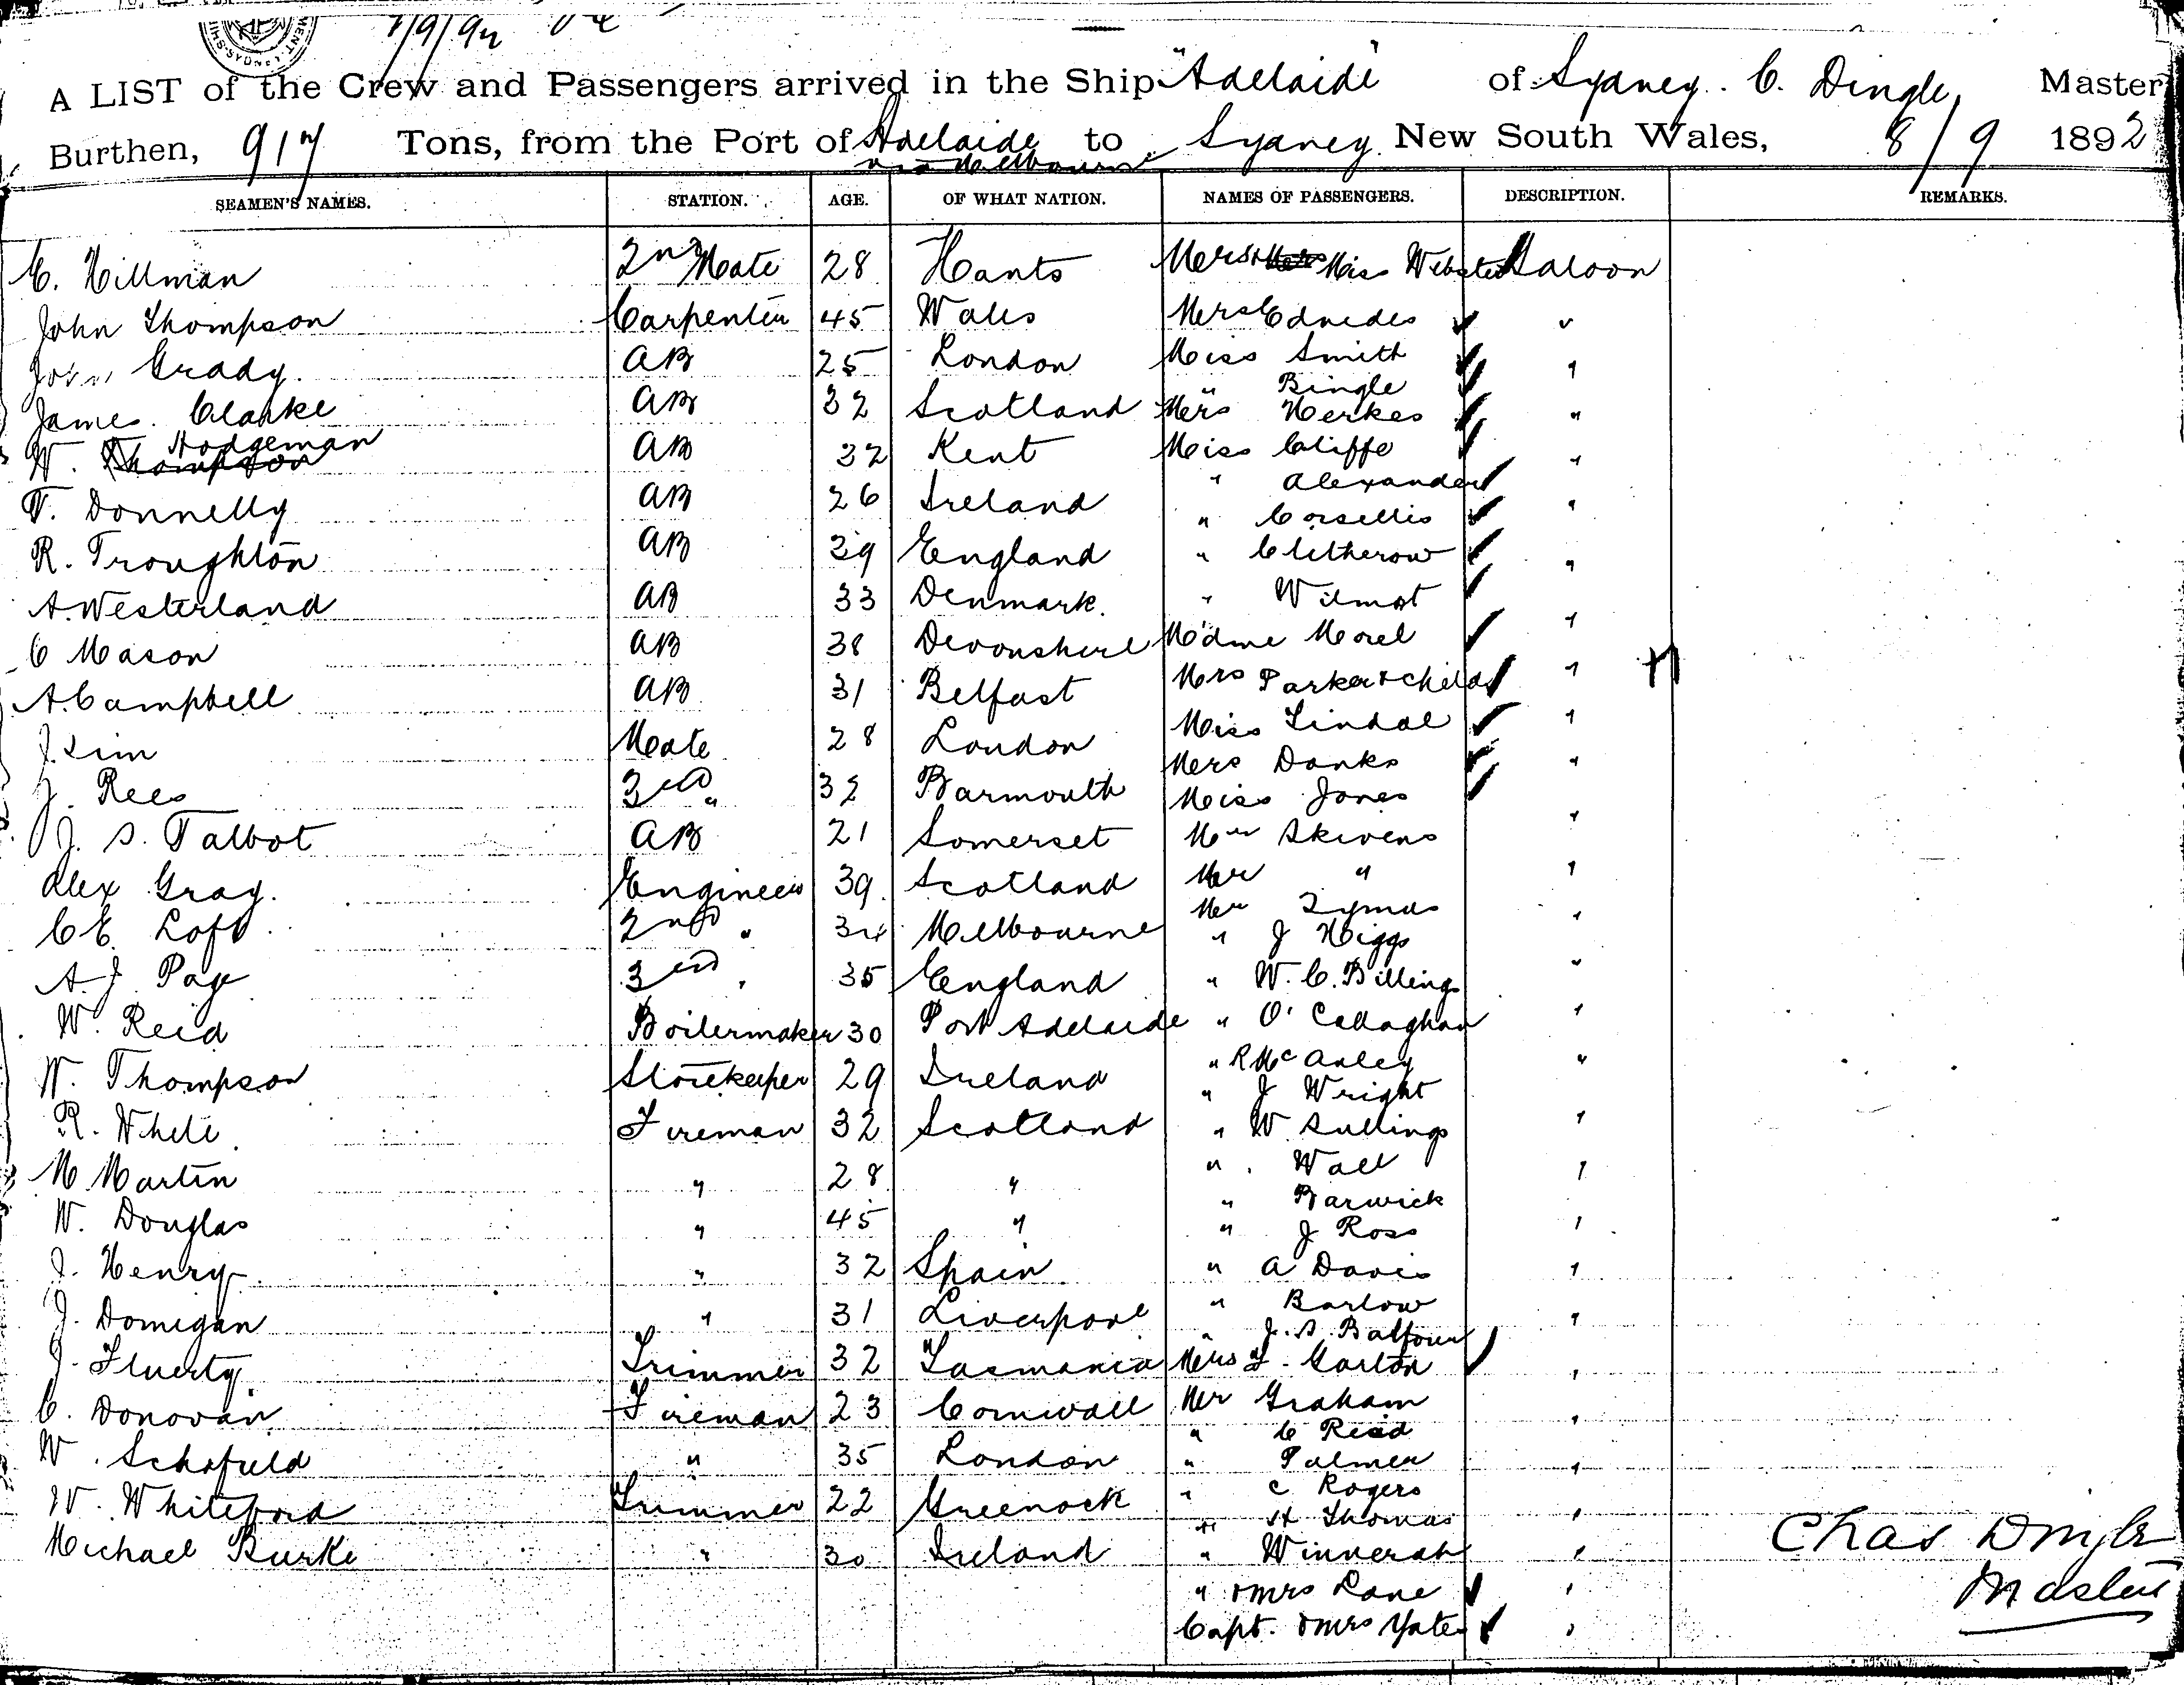 8/9/92
A LIST of the Crew and Passengers arrived in the Ship "Adelaide" of Sydney. C. Dingle, Master
Burthen, 917 Tons, from the Port of Adelaide to Sydney New South Wales, 8/9 1892
via Melbourne
SEAMEN'S NAMES. STATION. AGE. OF WHAT NATION. NAMES OF PASSENGERS. DESCRIPTION. REMARKS.
C. Hillman 2nd Mate 28 Hants Mrs & Miss Webster Saloon
John Thompson Carpenter 45 Wales Mrs Ednedes "
John Grady. AB 25 London Miss Smith "
" Bingle
James Clarke AB 32 Scotland Mrs Herkes "
W. Thompson Hodgeman AB 32 Kent Miss Cliffe "
" Alexander
T. Donnelly AB 26 Ireland " Corsellis "
R. Troughton AB 39 England " Clitherow "
A. Westerland AB 33 Denmark. " Wilmot "
C Mason AB 38 Devonshire M'dme Morel "
A. Campbell AB 31 Belfast Mrs Parker & child "
J. Sim Mate 28 London Miss Lindal "
Mrs Danks
J. Rees 3rd " 32 Barmouth Miss Jones "
J. S. Talbot AB 21 Somerset Mr Skivens "
Alex Gray. Engineer 39 Scotland Mr " "
Mr Symes
C E. Loft 2nd " 34 Melbourne " J Higgs "
A. J. Page 3rd " 35 England " W. C. Billings "
W. Reid Boilermaker 30 Port Adelaide " O'Callaghan "
" R McAuley
W. Thompson Storekeeper 29 Ireland " J Wright "
R. White Fireman 32 Scotland " W Sullings "
M Martin " 28 " " Wall "
" Barwick
W. Douglas " 45 " " J Ross "
J. Henry " 32 Spain " A Davis "
J. Domegan " 31 Liverpool " Barlow "
" J. S. Balfour
J. Fluerty Trimmer 32 Tasmania Mrs F. Garton "
C. Donovan Fireman 23 Cornwall Mr Graham "
" C Reid
W. Schofield " 35 London " Palmer "
" C Rogers
W. Whiteford Trimmer 22 Greenock " H Thomas "
Michael Burke " 30 Ireland " Winnerah "
" & Mrs Lane "
Capt. & Mrs Yates "
Chas Dingle
Master